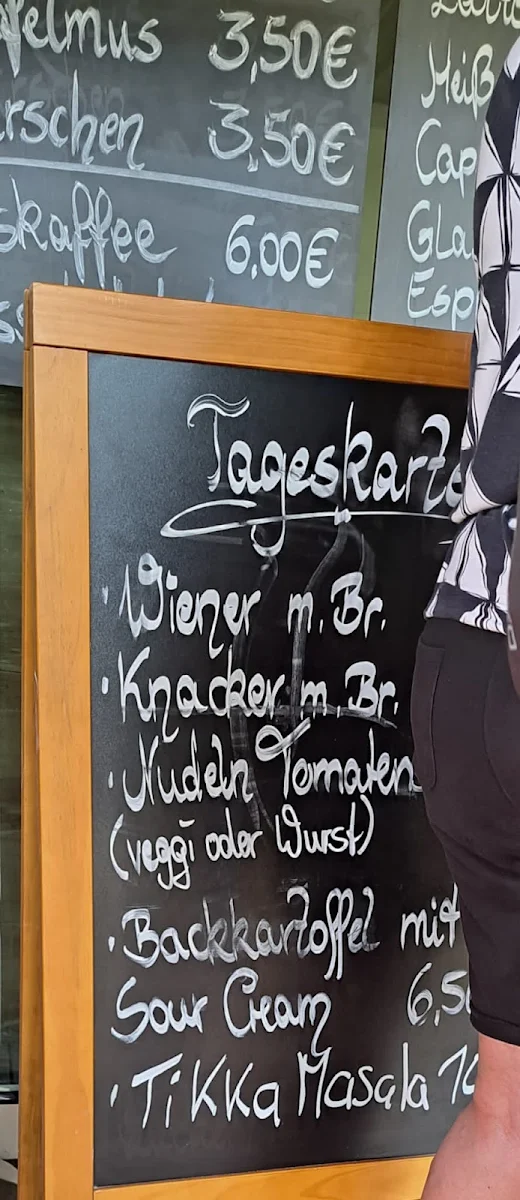 felmus 3,50€
rschen 3,50€
skaffee 6,00€
Heiß
Cap
Gla
Esp
Tageskarte
· Wiener m. Br.
· Knacker m. Br.
· Nudeln Tomaten
(veggi oder Wurst)
· Backkartoffel mit
Sour Cream 6,50
· Tikka Masala 10